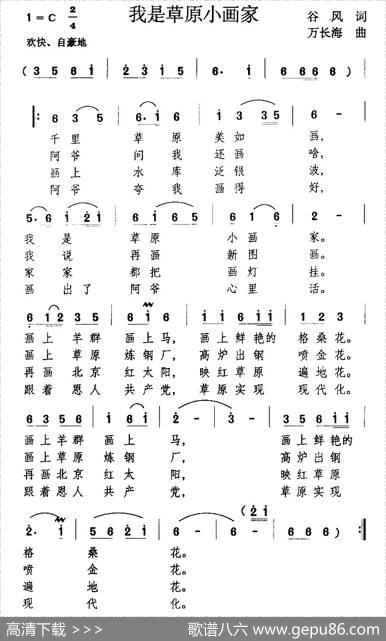 我是草原小画家
1=C 2/4
谷风 词
欢快、自豪地
万长海 曲
(3 5 6 i | 2 3 i 5 | 6· i | 6 6 6 6) |
6 3 5 | 6 i 6 | i 3 3 5 | 6 - |
千里 草原 美如 画,
阿爷 问我 还画 啥,
画上 水库 泛银 波,
阿爷 夸我 画得 好,
5·6 i 2 i | 6 i 6 5 | 6 i 6 | 2 - |
我是 草原 小画 家。
我说 再画 新图 画。
家家 都把 画灯 挂。
画出了 阿爷 心里 话。
6 i 2 3 5 | 6 5 6 i | i i 6 6 i i | 5 3 5 2 3 |
画上 羊群 画上马, 画上鲜艳的 格桑花。
画上 草原 炼钢厂, 高炉出钢 喷金花。
再画 北京 红太阳, 映红草原 遍地花。
跟着 恩人 共产党, 草原实现 现代化。
6 3 5 6 | i 6 i | 2 - | 3 - | 3 5 6 i i |
画上羊群 画上 马, 画上鲜艳的
画上草原 炼钢 厂, 高炉出钢
再画北京 红太 阳, 映红草原
跟着恩人 共产 党, 草原实现
(2 i)
2· i | 5 6 2 i | 6 - | 6 6 6)
格桑 花。
喷金 花。
遍地 花。
现代 化。
高清下载 >>>
歌谱八六 www.gepu86.com